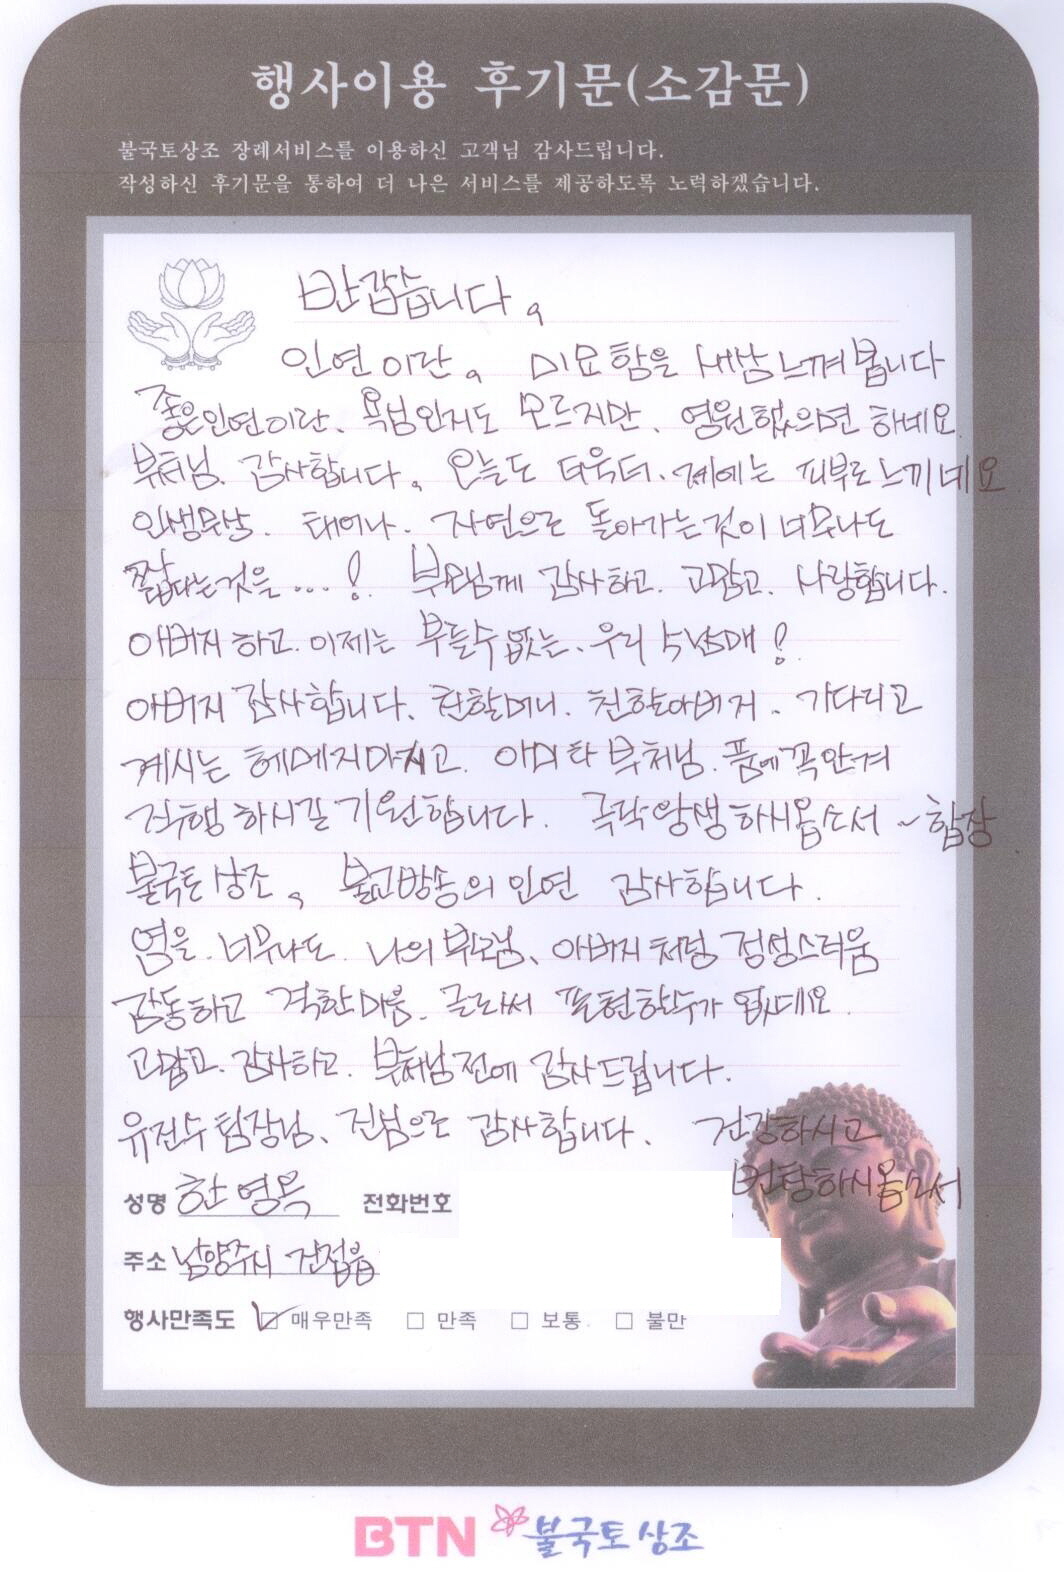 행사이용 후기문(소감문)
불국토상조 장례서비스를 이용하신 고객님 감사드립니다.
작성하신 후기문을 통하여 더 나은 서비스를 제공하도록 노력하겠습니다.
반갑습니다.
인연이란. 미묘함을 새삼느껴봅니다
좋은인연이란. 욕심인지도 모르지만. 영원했으면 하네요.
부처님. 감사합니다. 오늘도 더욱더. 계에는 피부로느끼네요
인생무상. 태어나. 자연으로 돌아가는것이 너무나도
짧다는것을 ...! 부모님께 감사하고. 고맙고. 사랑합니다.
아버지하고. 이제는 부를수없는. 우리 5남매!
아버지 감사합니다. 친할머니. 친할아버지. 기다리고
계시는 헤메지마시고. 아미타부처님. 품에꼭안겨
직행하시길 기원합니다. 극락왕생하시옵소서~합장
불국토상조. 불교방송의인연 감사합니다.
염을. 너무나도. 나의부모님. 아버지처럼 정성스러움
감동하고 격한마음. 글로써 표현할수가 없네요.
고맙고. 감사하고. 부처님전에 감사드립니다.
유전수팀장님. 진심으로 감사합니다. 건강하시고
번창하시옵소서
성명 한영옥 전화번호
주소 남양주시 진접읍
행사만족도 ☑ 매우만족 □ 만족 □ 보통 □ 불만
BTN 불국토상조